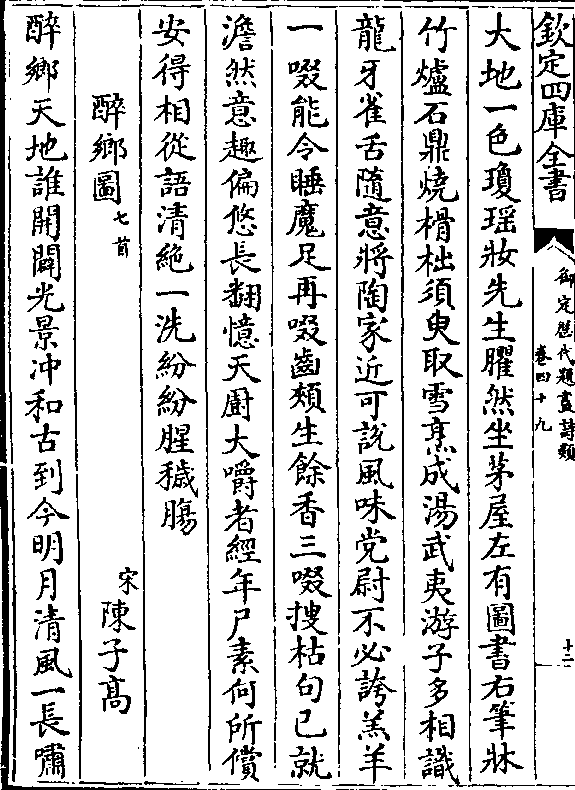 欽定四庫全書
御定歴代題畫詩類
卷四十九
十二
大地一色瓊瑶妝先生臞然坐茅屋左有圖書右筆牀
竹爐石鼎燒榾柮須臾取雪烹成湯武夷游子多相識
龍牙雀舌隨意將陶家近可説風味党尉不必誇羔羊
一啜能令睡魔足再啜齒頰生餘香三啜搜枯句已就
澹然意趣偏悠長翻憶天厨大嚼者經年尸素何所償
安得相從語清絶一洗紛紛腥穢腸
醉鄉圖七首
宋陳子高
醉鄉天地誰開闢光景冲和古到今明月清風一長嘯